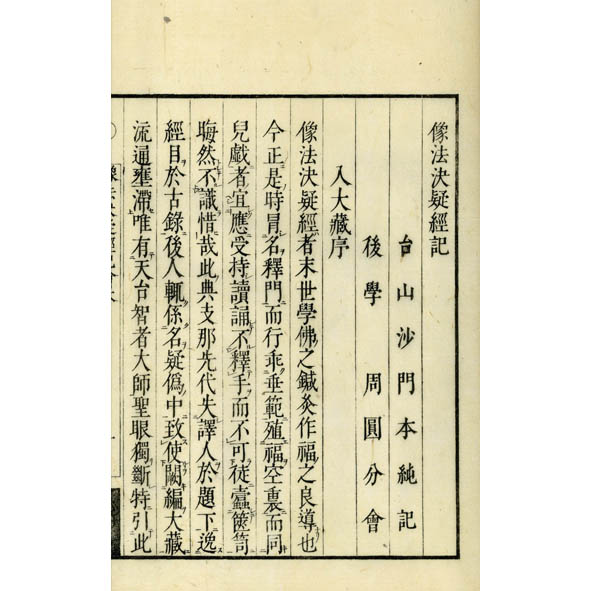 像法決疑經記
台山沙門本純記
後學 周圓分會
入大藏序
像法決疑經者末世學佛之鍼灸作福之良導也
今正是時冒名釋門而行乖垂範殖福空裏而同
兒戲者宜應受持讀誦不釋手而不可徒蠹篋笥
晦然不識惜哉此典支那先代失譯人於題下逸
經目於古錄後人輒係名疑僞中致使闕編大藏
流通壅滯唯有天台智者大師聖眼獨斷特引此